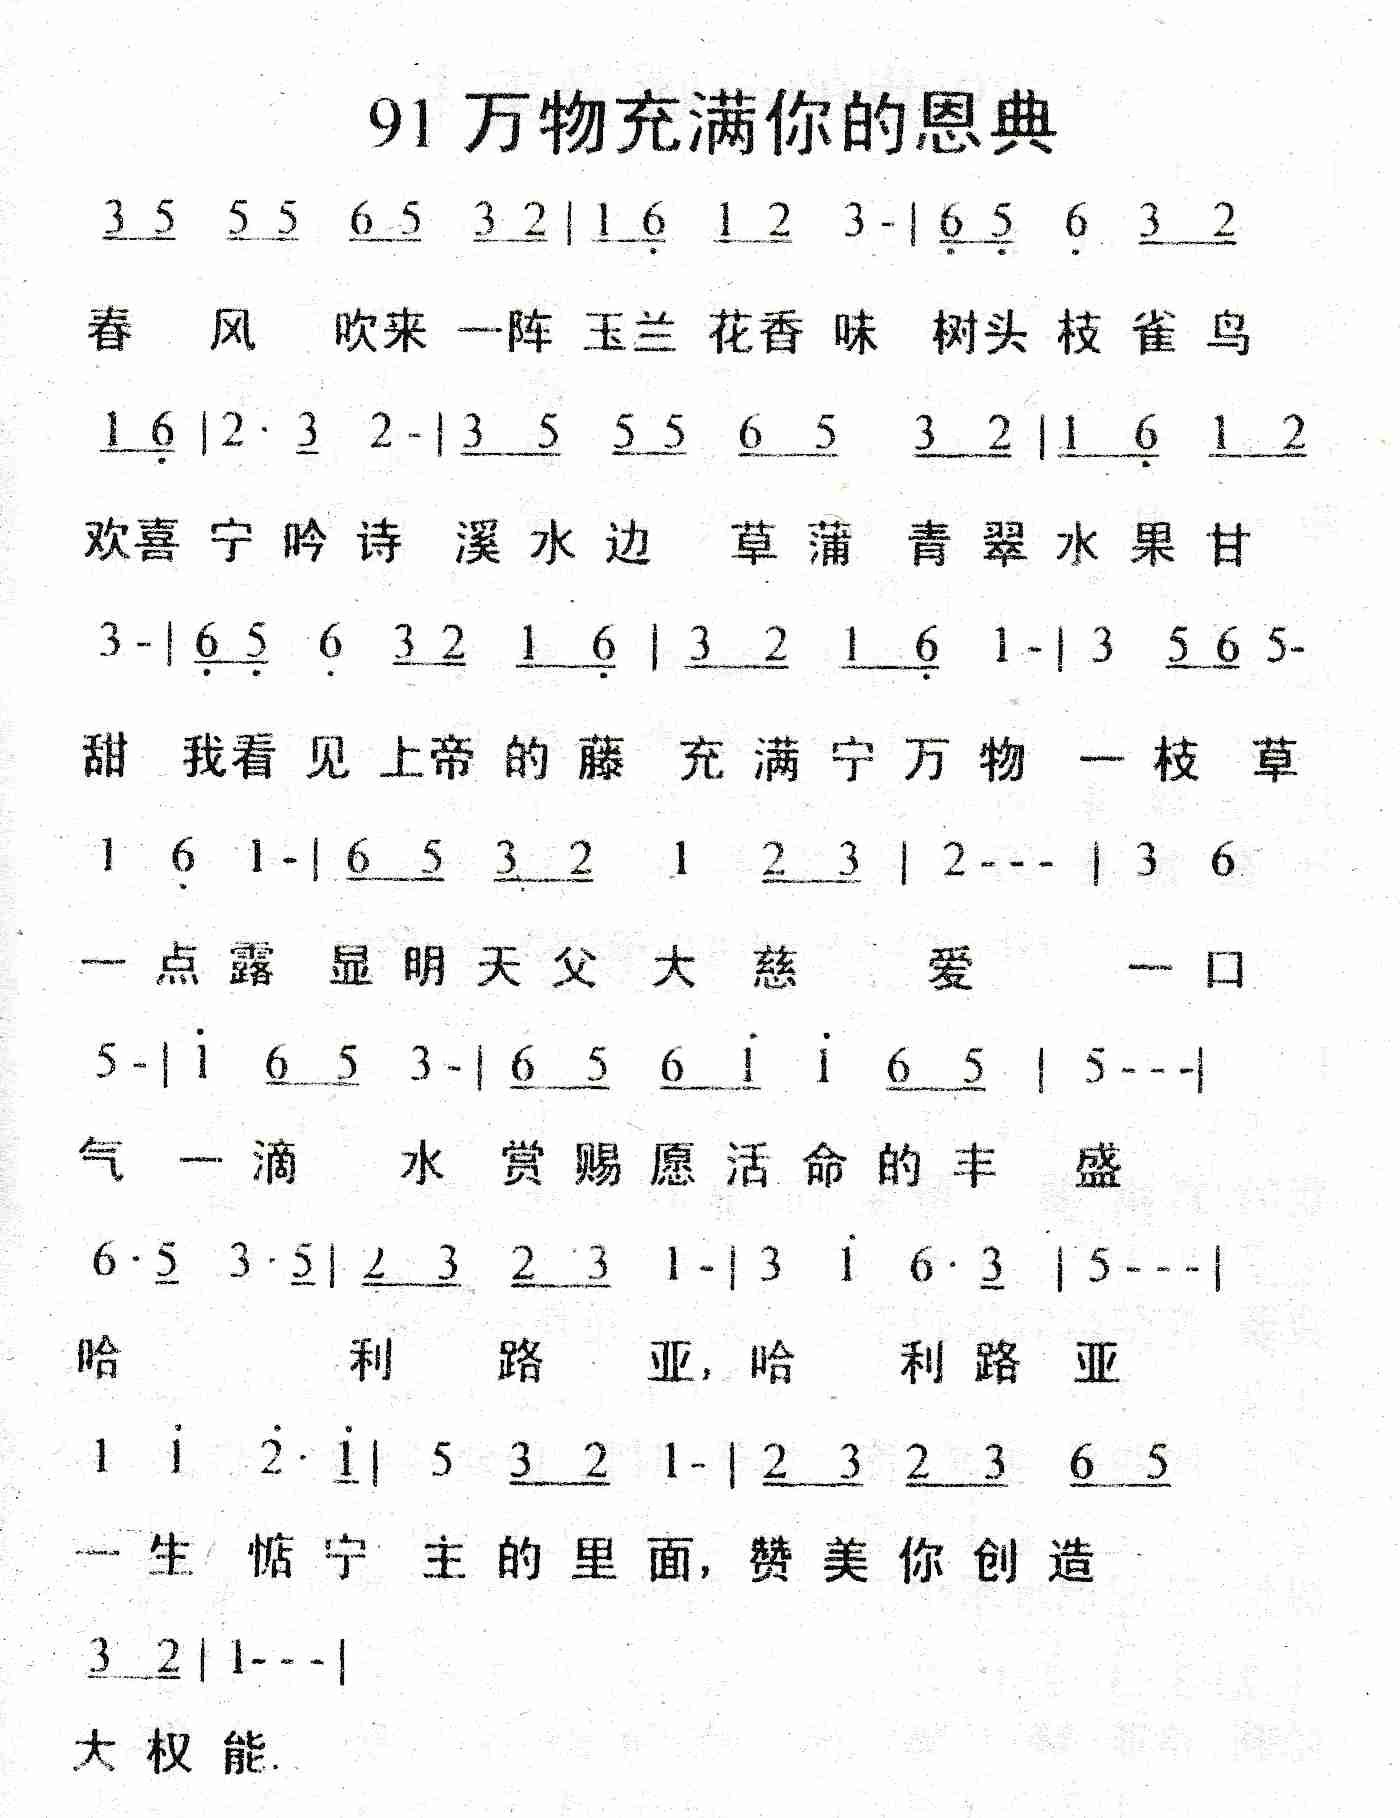 91 万物充满你的恩典
3 5 5 5 6 5 3 2 | 1 6̣ 1 2 3 - | 6̣ 5̣ 6̣ 3 2
春 风 吹来 一阵 玉兰 花香 味 树头 枝 雀 鸟
1 6̣ | 2 · 3 2 - | 3 5 5 5 6 5 3 2 | 1 6̣ 1 2
欢喜 宁 吟 诗 溪 水 边 草 蒲 青 翠 水 果 甘
3 - | 6̣ 5̣ 6̣ 3 2 1 6̣ | 3 2 1 6̣ 1 - | 3 5 6 5 -
甜 我看 见 上帝 的 藤 充 满 宁 万 物 一 枝 草
1 6̣ 1 - | 6 5 3 2 1 2 3 | 2 - - - | 3 6
一 点 露 显 明 天 父 大 慈 爱 一 口
5 - | 1̇ 6 5 3 - | 6 5 6 1̇ 1̇ 6 5 | 5 - - - |
气 一 滴 水 赏 赐 愿 活 命 的 丰 盛
6 · 5 3 · 5 | 2 3 2 3 1 - | 3 1̇ 6 · 3 | 5 - - - |
哈 利 路 亚，哈 利 路 亚
1 1̇ 2̇ · 1̇ | 5 3 2 1 - | 2 3 2 3 6 5
一 生 惦 宁 主 的 里 面，赞 美 你 创 造
3 2 | 1 - - - |
大 权 能.